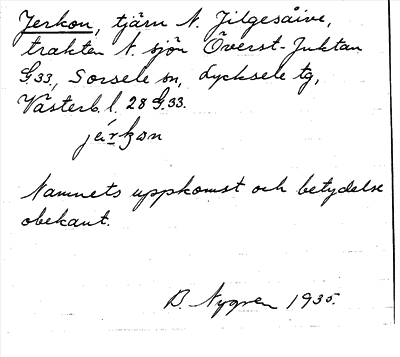 Jerkon, tjärn N. Jilgesåive,
trakten N. sjön Överst-Juktan
G33, Sorsele sn, Lycksele tg,
Västerb. l. 28 G.33.
Namnets uppkomst och betydelse
obekant.
B. Nygren 1935.